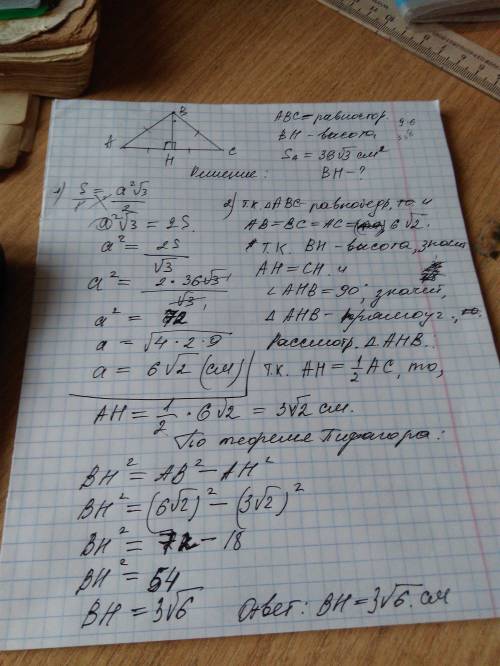 B
A
H
C
ABC = равностор.
BH - высота,
S△ = 36√3 см²
BH - ?
Решение:
1) S = a²√3 / 2
a²√3 = 2S
a² = 2S / √3
a² = 2 · 36√3 / √3
a² = 72
a = √4 · 2 · 9
a = 6√2 (см)
2) т.к. △ABC - равнобедр, то и
AB = BC = AC = 6√2.
т.к. BH - высота, знач
AH = CH. и
∠AHB = 90°, значит,
△AHB - прямоуг.
Рассмотр. △AHB.
т.к. AH = 1/2 AC, то,
AH = 1/2 · 6√2 = 3√2 см.
По теореме Пифагора:
BH² = AB² - AH²
BH² = (6√2)² - (3√2)²
BH² = 72 - 18
BH² = 54
BH = 3√6
Ответ: BH = 3√6 см